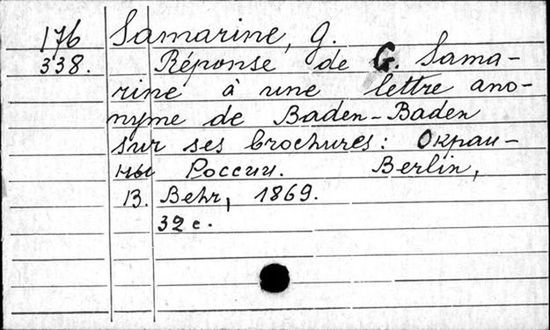 176 Samarine, G.
338. Réponse de G. Sama-
rine à une lettre ano-
nyme de Baden-Baden
sur ses brochures: Окраи-
ны России. Berlin,
B. Behr, 1869.
32 с.